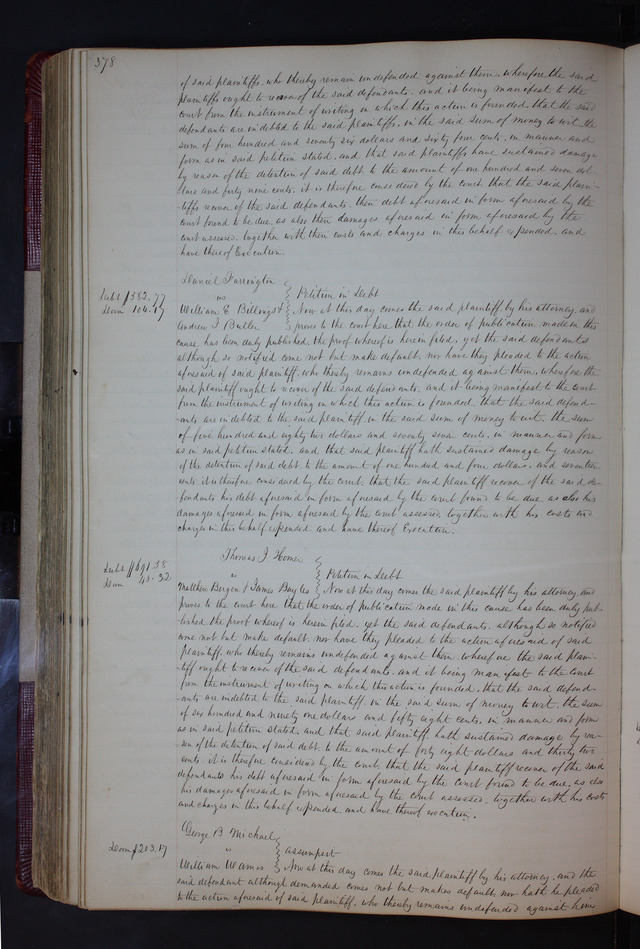 378
of said plaintiffs. who thereby remain undefended against them. wherefore the said
plaintiffs ought to recover of the said defendants. and it being manifest to the
court from the instrument of writing on which this action is founded. that the said
defendants are indebted to the said plaintiffs. in the said sum of money to wit. the
sum of four hundred and seventy six dollars and sixty four cents. in manner and
form as in said petition stated. and that said plaintiffs have sustained damage
by reason of the detention of said debt to the amount of one hundred and seven dol-
-lars and forty nine cents. it is therefore considered by the court that the said plain-
-tiffs recover of the said defendants. their debt aforesaid in form aforesaid by the
court found to be due. as also their damages aforesaid in form aforesaid by the
court assessed. together with their costs and charges in this behalf expended. and
have thereof Execution.
Daniel Farrington
vs
William E Billings &
Andrew J Butler
Debt $582.77
Dam 104.17
Petition in Debt
Now at this day comes the said plaintiff by his attorney. and
proves to the court here that the order of publication made in this
cause has been duly published. the proof whereof is herein filed. yet the said defendants
although so notified come not but make default. nor have they pleaded to the action
aforesaid of said plaintiff. who thereby remains undefended against them. wherefore the
said plaintiff ought to recover of the said defendants. and it being manifest to the court
from the instrument of writing on which this action is founded that the said defend-
-ants are indebted to the said plaintiff in the said sum of money to wit. the sum
of five hundred and eighty two dollars and seventy seven cents. in manner and form
as in said petition stated. and that said plaintiff hath sustained damage by reason
of the detention of said debt. to the amount of one hundred and four dollars. and seventeen
cents. it is therefore considered by the court. that the said plaintiff recover of the said de-
-fendants his debt aforesaid in form aforesaid by the court found to be due. as also his
damages aforesaid in form aforesaid by the court assessed. together with his costs and
charges in this behalf expended. and have thereof Execution.
Thomas J Homer
"
Matthew Bergen & James Bayles
Debt $691.58
Dam 48.32
Petition in Debt
Now at this day comes the said plaintiff by his attorney. and
proves to the court here that the order of publication made in this cause has been duly pub-
-lished. the proof whereof is herein filed. yet the said defendants. although so notified
come not but make default. nor have they pleaded to the action aforesaid of said
plaintiff. who thereby remains undefended against them. wherefore the said plain-
-tiff ought to recover of the said defendants. and it being manifest to the court
from the instrument of writing on which this action is founded. that the said defend-
-ants are indebted to the said plaintiff. in the said sum of money to wit. the sum
of six hundred and ninety one dollars and fifty eight cents. in manner and form
as in said petition stated. and that said plaintiff hath sustained damage by rea-
-son of the detention of said debt. to the amount of forty eight dollars and thirty two
cents. it is therefore considered by the court. that the said plaintiff recover of the said
defendants his debt aforesaid in form aforesaid by the Court found to be due. as also
his damages aforesaid in form aforesaid by the court assessed. together with his costs
and charges in this behalf expended. and have thereof execution.
George B Michael
"
William Weamos
Dam $213.17
assumpsit
Now at this day comes the said plaintiff by his attorney. and the
said defendant although demanded comes not but makes default. nor hath he pleaded
to the action aforesaid of said plaintiff. who thereby remains undefended against him